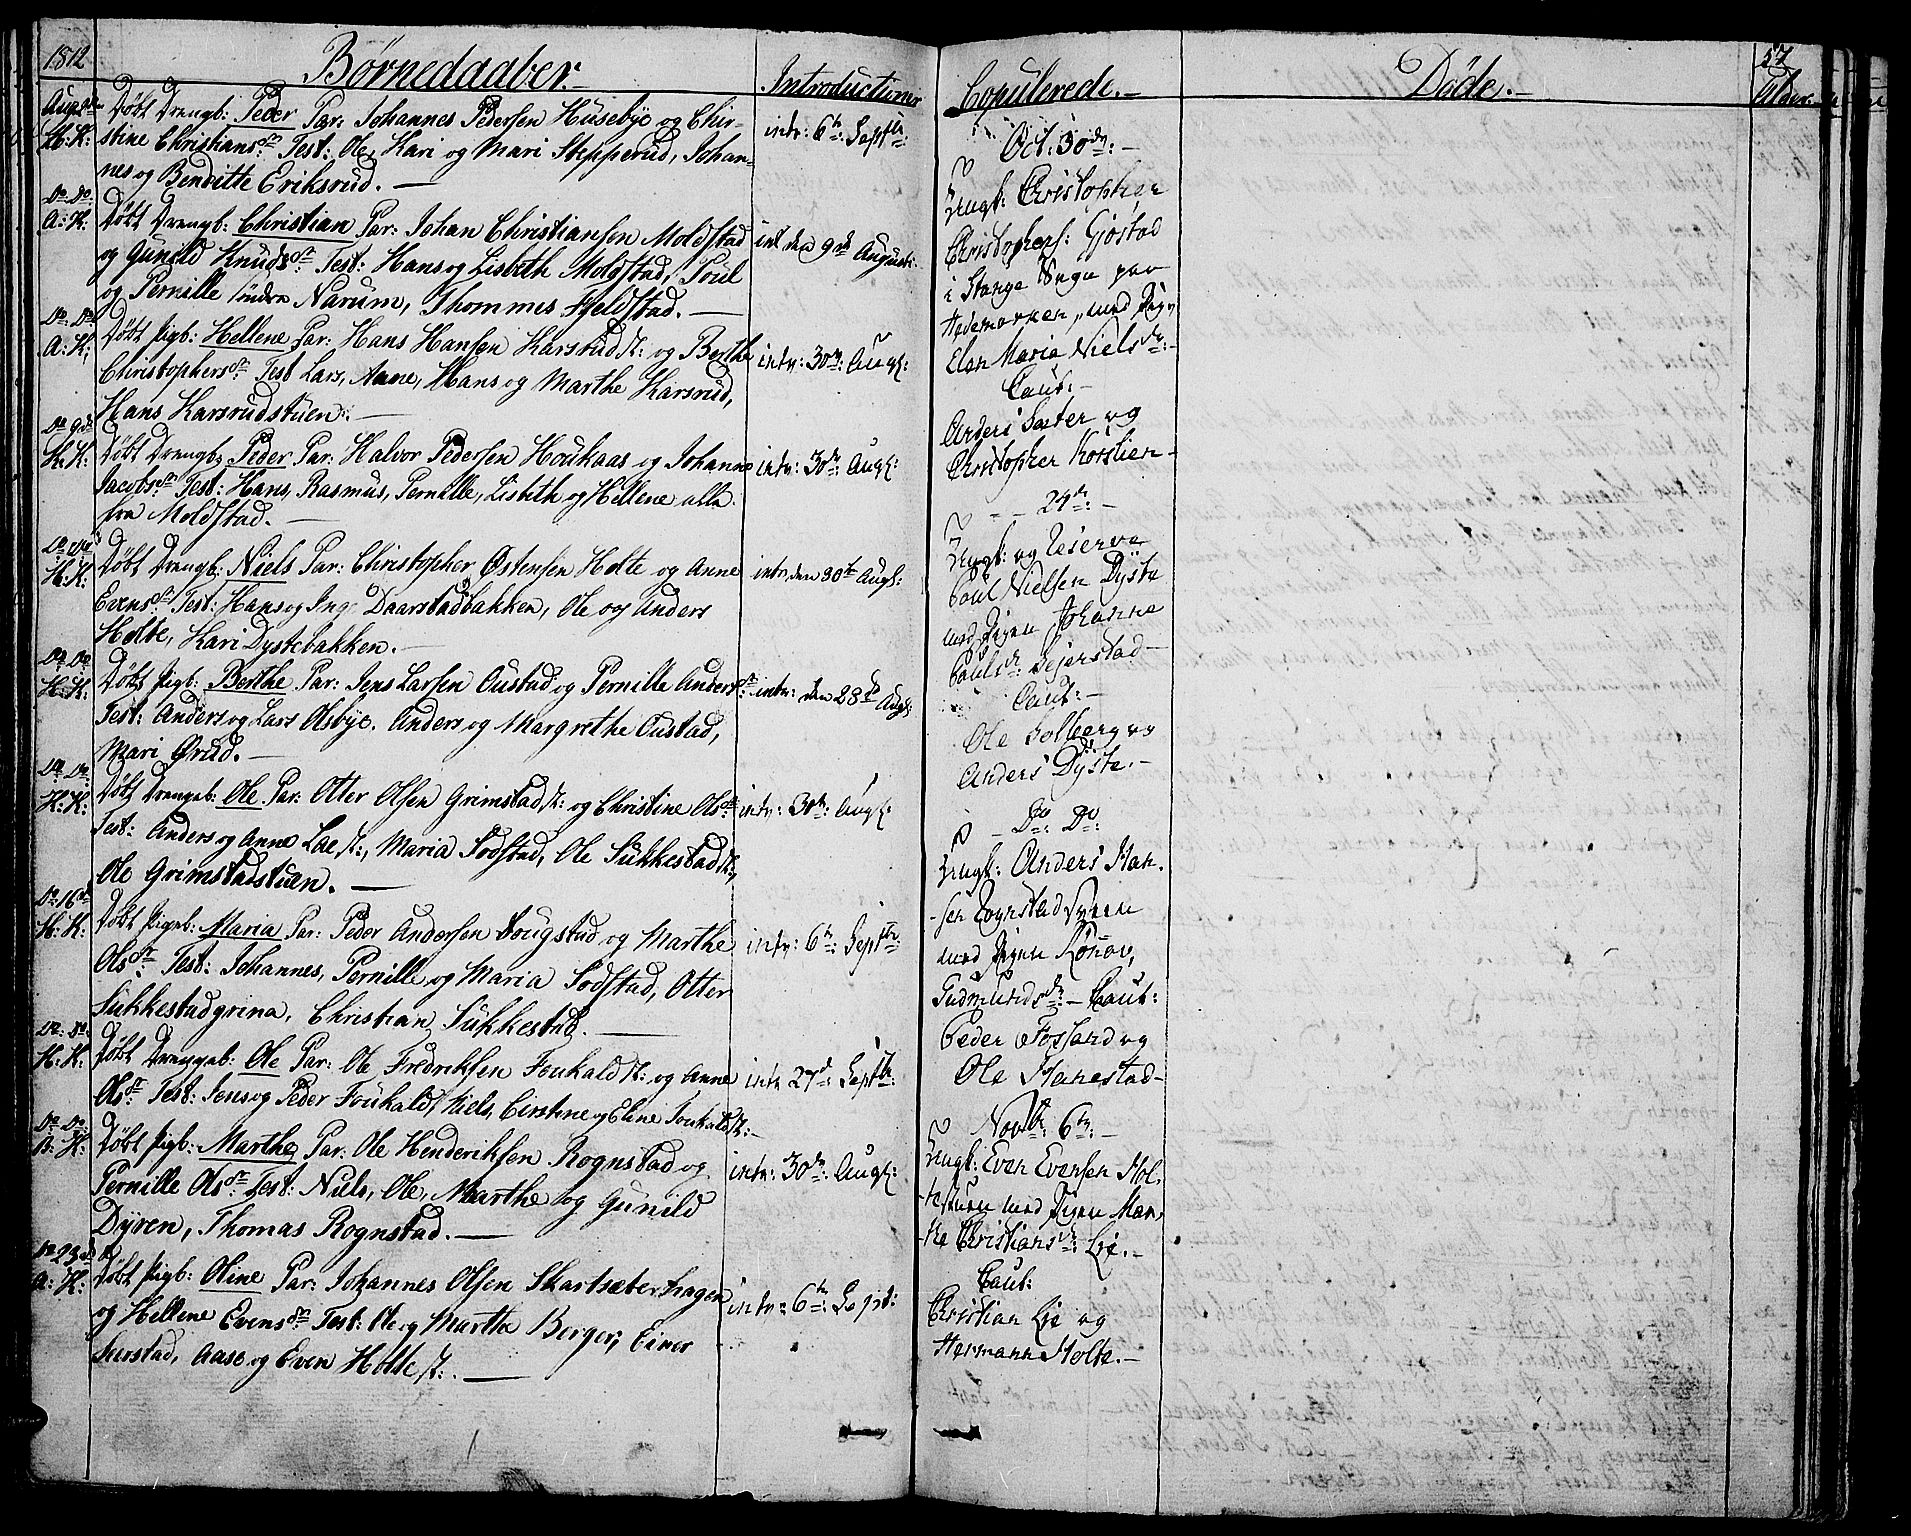 1812
Børnedaaber.-
Introductioner
Aug: 2den
H: K:
Døbt Drengb: Peder Par: Johannes Pedersen Husebye og Chir-
stine Christiansdr: Test: Ole, Kari og Mari Stepperud, Johan-
nes og Benditte Eriksrud. —
intr: 6te Septbr:
Do Do
A: K:
Døbt Drengb: Christian Par: Johan Christiansen Moldstad
og Gunild Knudsdr: Test: Hans og Lisbeth Moldstad, Poul
og Pernille søndre Narum, Thommes Fjeldstad. —
int den 9de August:
Do Do
A: K:
Døbt Pigb: Hellene Par: Hans Hansen Karsrud st: og Berthe
Christophersdr: Test Lars, Anne, Hans og Marthe Karsrud,
Hans Karsrudstuen. —
intr: 30te: Augst:
Do 9de
K: K:
Døbt Drengb: Peder Par: Halvor Pedersen Houkaas og Johanne
Jacobsdr: Test: Hans, Rasmus, Pernille, Lisbeth og Hellene alle
fra Moldstad. —
intr: 30te: Augst:
Do Do
H: K:
Døbt Drengb: Niels Par: Christopher Østensen Holte og Anne
Evensdr: Test: Hans og Inge Daarstadbakken, Ole og Anders
Holte, Kari Dystebakken. —
intr den 30te Augst:
Do Do
H: K:
Døbt Pigb: Berthe Par: Jens Larsen Oustad og Pernille Andersdr:
Test: Anders og Lars Olsbye, Anders og Margrethe Oustad,
Mari Qrud. —
intr: den 23de Augst:
Do Do
H: K:
Døbt Drengeb: Ole Par: Otter Olsen Grimstad st: og Christine Olsdr:
Test: Anders og Anne Lae st:, Maria Sodstad, Ole Sukkestad st:,
Ole Grimstadstuen. —
intr: 30te: Augst:
Do 16de
H: K:
Døbt Pigeb: Maria Par: Peder Andersen Sougstad og Marthe
Olsdr: Test: Johannes, Pernille og Maria Sodstad, Otter
Sukkestadgrina, Christian Sukkestad. —
intr: 6te: Septbr:
Do: Do:
H: K:
Døbt Drengeb: Ole Par: Ole Fredriksen Foukald st: og Anne
Olsdr: Test: Jens og Peder Foukald, Niels, Cirstine og Eline Foukald st: —
intr 27de: Septbr:
Do Do:
B: K:
Døbt Pigb: Marthe Par: Ole Henderiksen Rognstad og
Pernille Olsdr: Test: Niels, Ole, Marthe og Gunild
Dyren, Thomas Rognstad. —
intr: 30te: Augst:
Do 23de
A: K:
Døbt Pigb: Oline Par: Johannes Olsen Skartsæterhagen
og Hellene Evensdr: Test: Ole og Marthe Berger, Einer
Seierstad, Aase og Even Holte st: —
intr: 6te: Sept:
Copulerede. —
Oct: 30te: —
Ungk: Christopher
Christophers: Gjøstad
i Stange Sogn paa
Hedemarken, med Pigen
Elen Maria Nielsdr: —
Caut: —
Anders Sæter og
Christopher Korslien —
— — 24de: —
Ungk: og Reserve
Poul Nielsen Dyste
med Pigen Johanne
Poulsdr: Sejerstad —
Caut: —
Ole Solberg og
Anders Dyste. —
— Do: Do:
Ungk: Anders Han-
-sen Rognstad
med Pigen Rønnov,
Gudmundsdr: — Caut:
Peder Fossand og
Ole Hanestad —
Novbr: 6te: —
Ungk: Even Evensen Hol-
-testuen med Pigen Mar-
-the Christiansdr: Lie. —
Caut:
Christian Lie og
Hermann Holte. —
Døde. —
57
Alder.